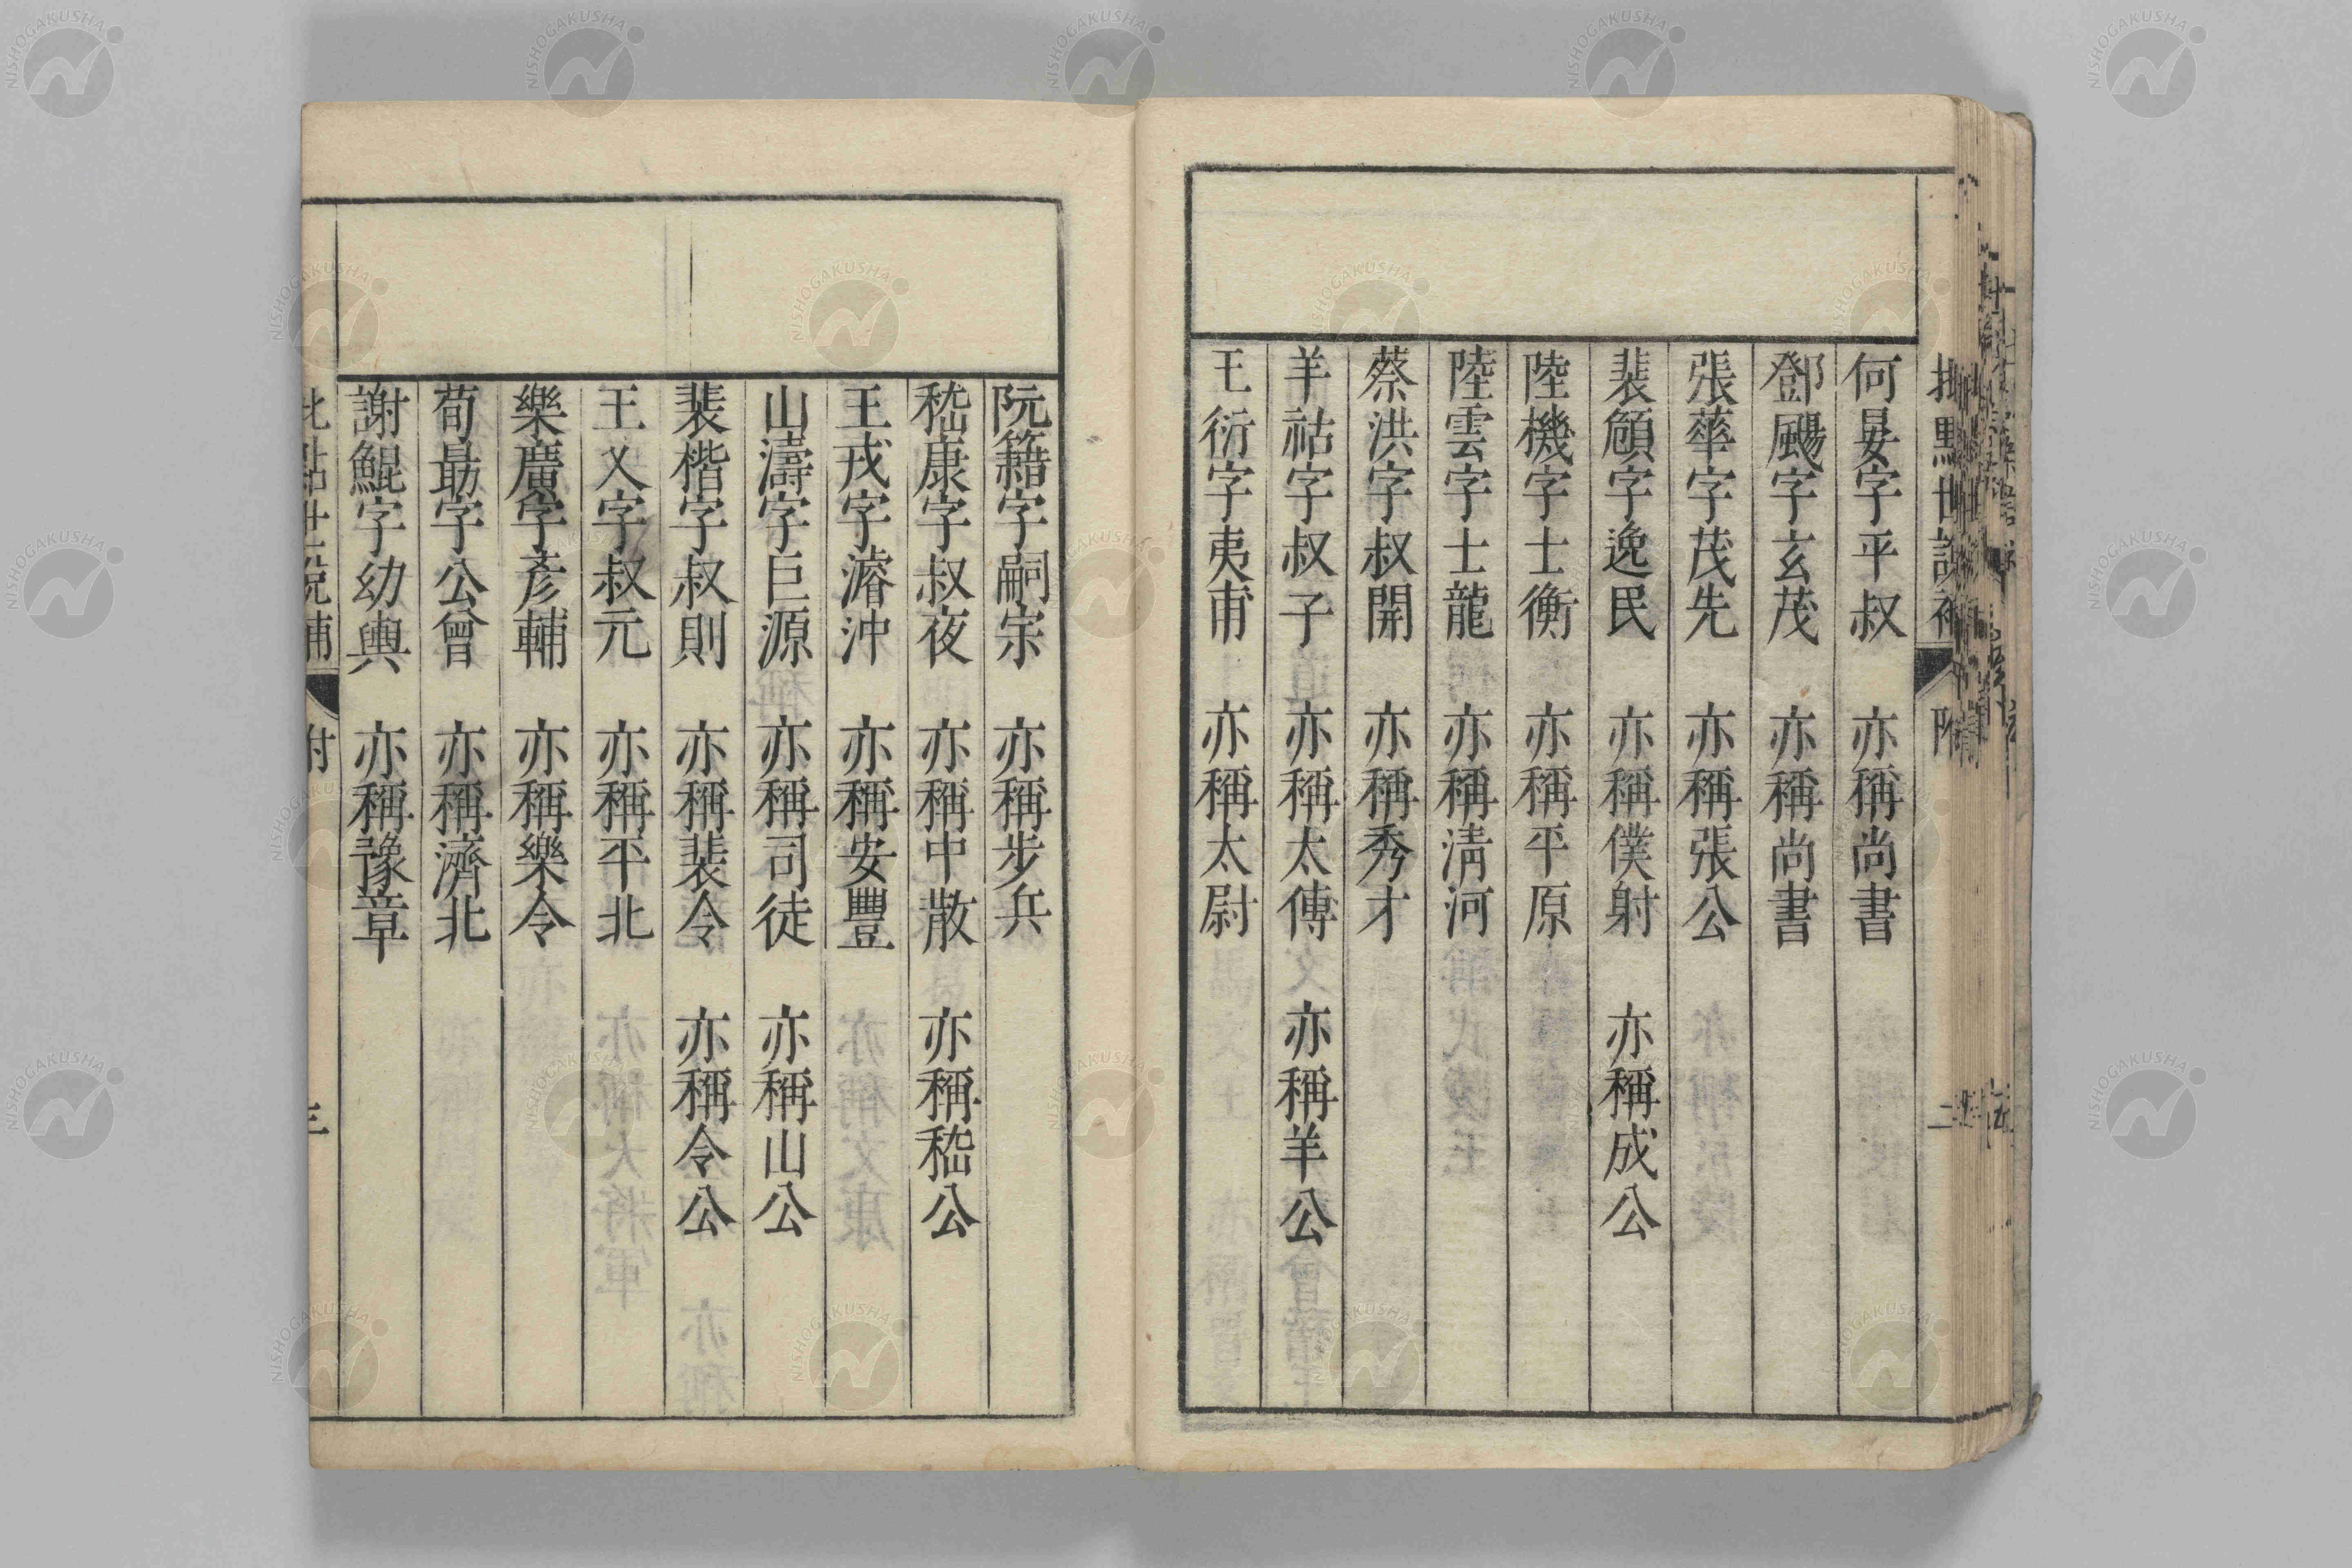 何晏字平叔　亦稱尚書
鄧颺字玄茂　亦稱尚書
張華字茂先　亦稱張公
裴頠字逸民　亦稱僕射　亦稱成公
陸機字士衡　亦稱平原
陸雲字士龍　亦稱淸河
蔡洪字叔開　亦稱秀才
羊祜字叔子　亦稱太傅　亦稱羊公
王衍字夷甫　亦稱太尉
阮籍字嗣宗　亦稱步兵
嵇康字叔夜　亦稱中散　亦稱嵇公
王戎字濬沖　亦稱安豐
山濤字巨源　亦稱司徒　亦稱山公
裴楷字叔則　亦稱裴令　亦稱令公
王乂字叔元　亦稱平北
樂廣字彥輔　亦稱樂令
荀勗字公曾　亦稱濟北
謝鯤字幼輿　亦稱豫章
世說補　附　三
NISHOGAKUSHA